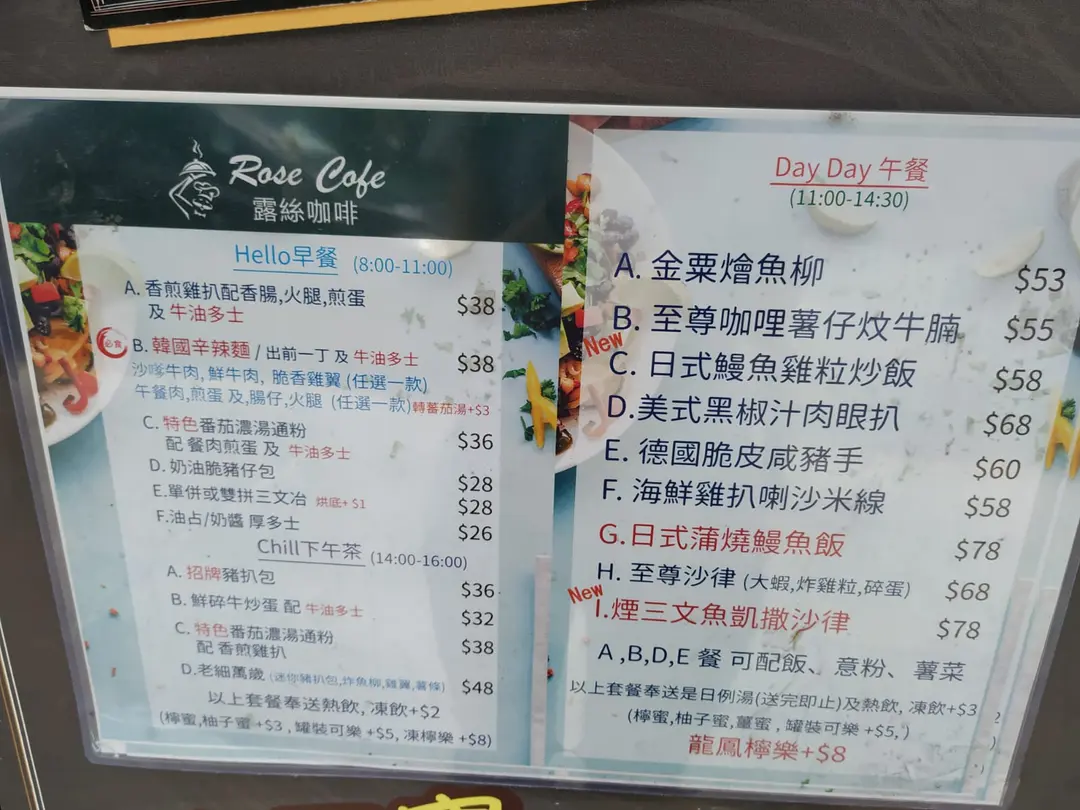 Rose Cofe
露絲咖啡
Hello早餐 (8:00-11:00)
A. 香煎雞扒配香腸,火腿,煎蛋 $38
及 牛油多士
必食
B. 韓國辛辣麵 / 出前一丁 及 牛油多士 $38
沙嗲牛肉, 鮮牛肉, 脆香雞翼 (任選一款)
午餐肉,煎蛋 及,腸仔,火腿 (任選一款)轉蕃茄湯+$3
C. 特色番茄濃湯通粉 $36
配 餐肉煎蛋 及 牛油多士
D. 奶油脆豬仔包 $28
E.單併或雙拼三文冶 烘底+ $1 $28
F.油占/奶醬 厚多士 $26
Chill下午茶 (14:00-16:00)
A. 招牌豬扒包 $36
B. 鮮碎牛炒蛋 配 牛油多士 $32
C. 特色番茄濃湯通粉 $38
配 香煎雞扒
D.老細萬歲 (迷你豬扒包,炸魚柳,雞翼,薯條) $48
以上套餐奉送熱飲, 凍飲+$2
(檸蜜,柚子蜜 +$3 , 罐裝可樂 +$5, 凍檸樂 +$8)
Day Day 午餐
(11:00-14:30)
A. 金粟燴魚柳 $53
B. 至尊咖哩薯仔炆牛腩 $55
New
C. 日式鰻魚雞粒炒飯 $58
D.美式黑椒汁肉眼扒 $68
E. 德國脆皮咸豬手 $60
F. 海鮮雞扒喇沙米線 $58
G.日式蒲燒鰻魚飯 $78
H. 至尊沙律 (大蝦,炸雞粒,碎蛋) $68
New
I.煙三文魚凱撒沙律 $78
A ,B,D,E 餐 可配飯、意粉、薯菜
以上套餐奉送是日例湯(送完即止)及熱飲, 凍飲+$3
(檸蜜,柚子蜜,薑蜜 , 罐裝可樂 +$5, )
龍鳳檸樂+$8